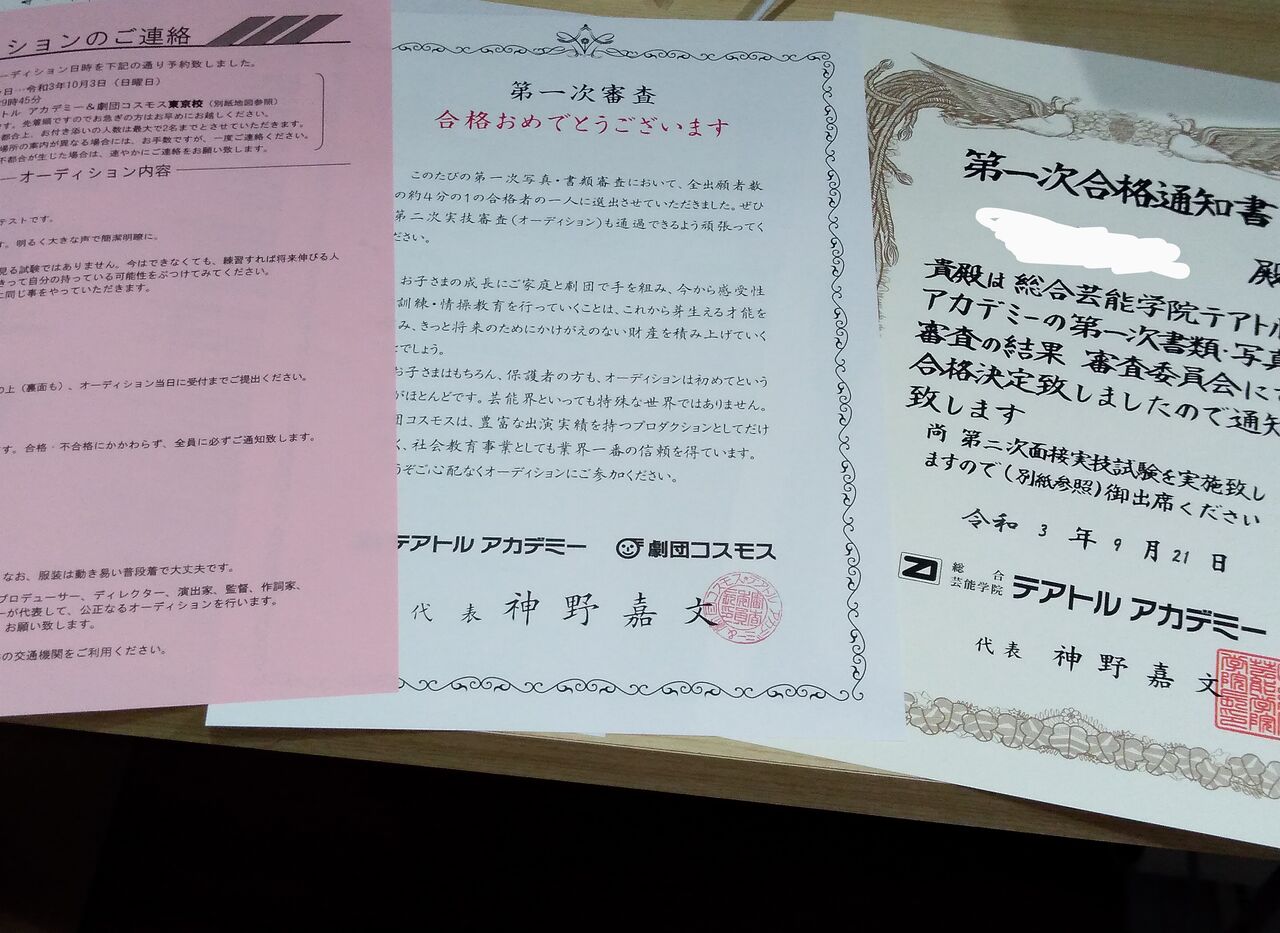 ションのご連絡
ーディション日時を下記の通り予約致しました。
日…令和3年10月3日(日曜日)
9時45分
トル アカデミー＆劇団コスモス東京校(別紙地図参照)
す。先着順ですのでお急ぎの方はお早めにお越しください。
都合上、お付き添いの人数は最大で2名までとさせていただきます。
場所の案内が異なる場合には、お手数ですが、一度ご連絡ください。
不都合が生じた場合は、速やかにご連絡をお願い致します。
オーディション内容
テストです。
す。明るく大きな声で簡潔明瞭に。
見る試験ではありません。今はできなくても、練習すれば将来伸びる人
きって自分の持っている可能性をぶつけてみてください。
に同じ事をやっていただきます。
の上(裏面も)、オーディション当日に受付までご提出ください。
す。合格・不合格にかかわらず、全員に必ずご通知致します。
なお、服装は動き易い普段着で大丈夫です。
プロデューサー、ディレクター、演出家、監督、作詞家、
ーが代表して、公正なるオーディションを行います。
お願い致します。
の交通機関をご利用ください。
第一次審査
合格おめでとうございます
このたびの第一次写真・書類審査において、全出願者数
の約4分の1の合格者の一人に選出させていただきました。ぜひ
第二次実技審査(オーディション)も通過できるよう頑張ってく
ださい。
お子さまの成長にご家庭と劇団で手を組み、今から感受性
訓練・情操教育を行っていくことは、これから芽生える才能を
み、きっと将来のためにかけがえのない財産を積み上げていく
でしょう。
お子さまはもちろん、保護者の方も、オーディションは初めてという
がほとんどです。芸能界といっても特殊な世界ではありません。
団コスモスは、豊富な出演実績を持つプロダクションとしてだけ
く、社会教育事業としても業界一番の信頼を得ています。
うぞご心配なくオーディションにご参加ください。
テアトル アカデミー 劇団コスモス
代表 神野嘉文
第一次合格通知書
殿
貴殿は総合芸能学院テアトル
アカデミーの第一次書類・写真
審査の結果 審査委員会にて
合格決定致しましたので通知
致します
尚 第二次面接実技試験を実施致し
ますので(別紙参照)御出席ください
令和3年9月21日
総合
芸能学院 テアトル アカデミー
代表 神野嘉文